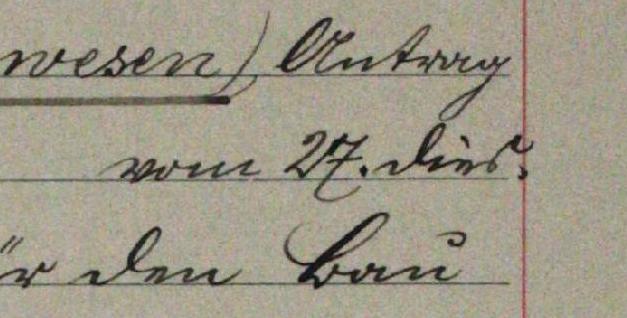 wesen) Antrag
vom 27. dies.
ür den Bau